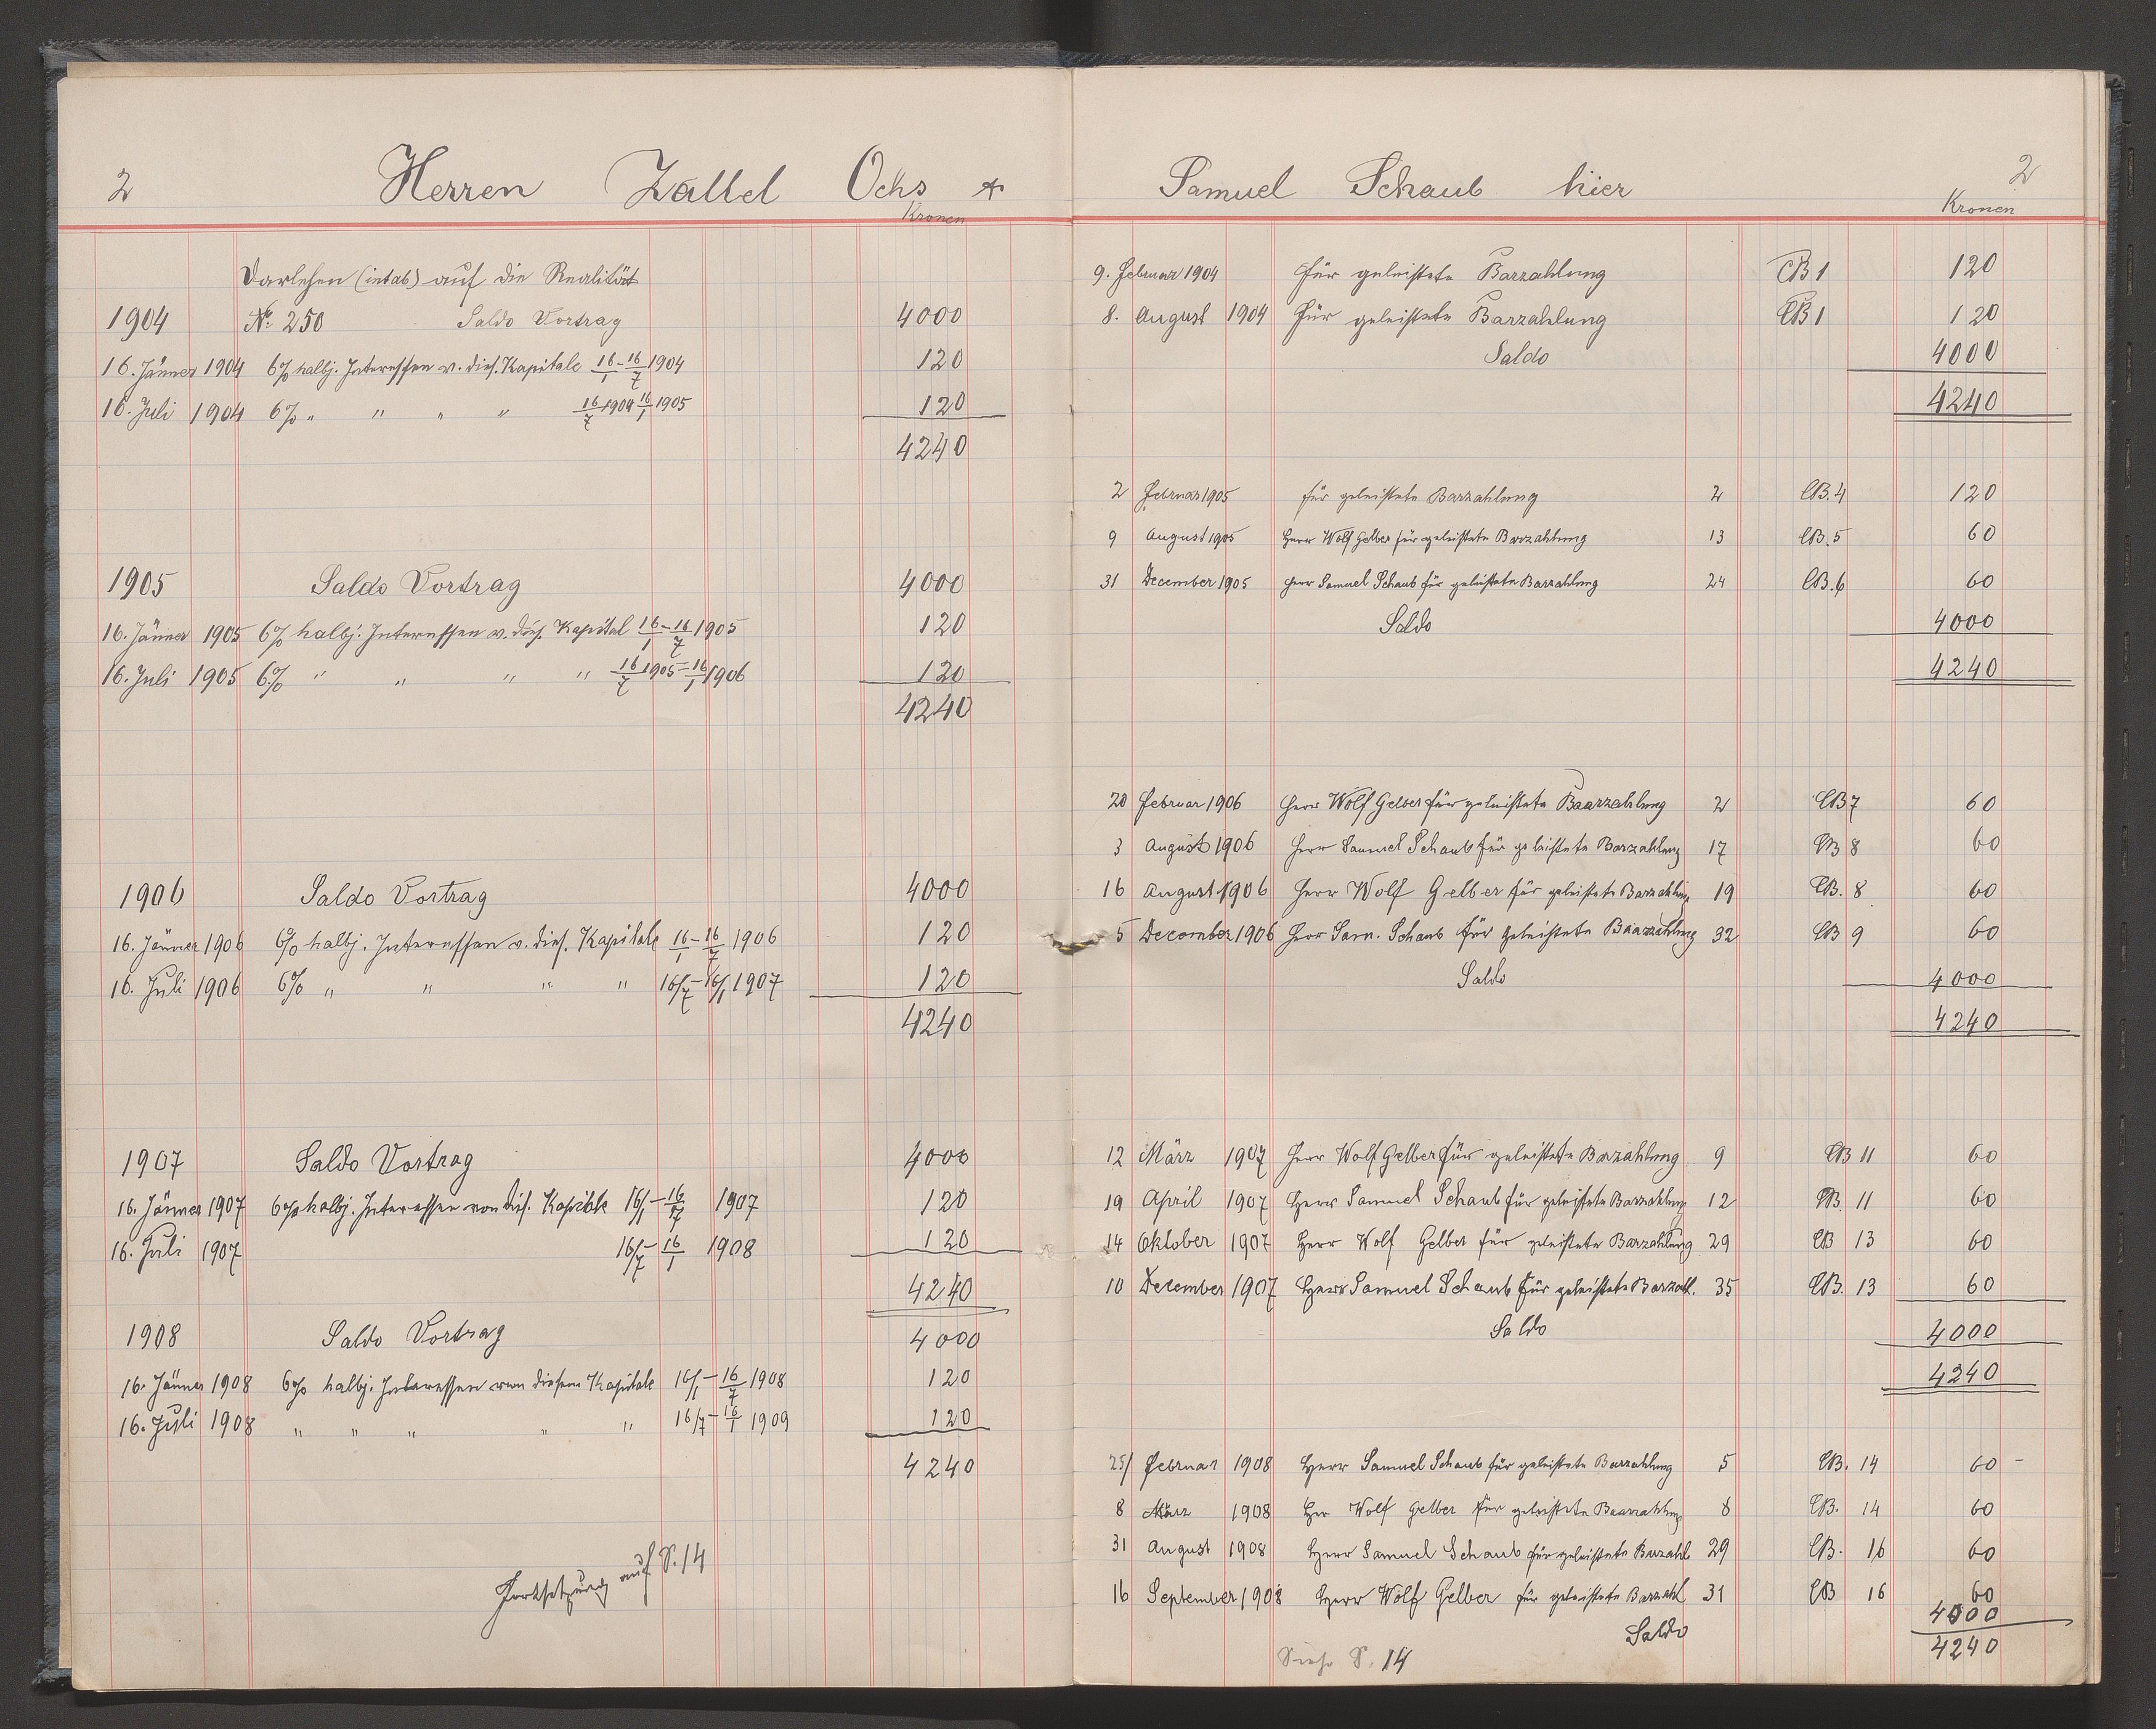 2 Herren Zallel Ochs &
Kronen
Darlehen (intab) auf die Realität
1904 No. 250 Saldo Vortrag 4000
16. Jänner 1904 6% halbj. Interessen v. dies. Kapitale 16/1 - 16/7 1904 120
16. Juli 1904 6% " " " " 16/7 1904 16/1 1905 120
4240
1905 Saldo Vortrag 4000
16. Jänner 1905 6% halbj. Interessen v. dies. Kapital 16/1 - 16/7 1905 120
16. Juli 1905 6% " " " " 16/7 1905 - 16/1 1906 120
4240
1906 Saldo Vortrag 4000
16. Jänner 1906 6% halbj. Interessen v. dies. Kapitale 16/1 - 16/7 1906 120
16. Juli 1906 6% " " " " 16/7 - 16/1 1907 120
4240
1907 Saldo Vortrag 4000
16. Jänner 1907 6% halbj. Interessen von dies. Kapitale 16/1 - 16/7 1907 120
16. Juli 1907 16/7 - 16/1 1908 120
4240
1908 Saldo Vortrag 4000
16. Jänner 1908 6% halbj. Interessen von diesem Kapitale 16/1 - 16/7 1908 120
16. Juli 1908 " " " " " 16/7 - 16/1 1909 120
4240
Fortsetzung auf S. 14
Samuel Schaub hier 2
Kronen
9. Februar 1904 Für geleistete Barzahlung CB 1 120
8. August 1904 Für geleistete Barzahlung CB 1 120
Saldo 4000
4240
2 Februar 1905 für geleistete Barzahlung 2 CB. 4 120
9 August 1905 Herr Wolf Gelber für geleistete Barzahlung 13 CB. 5 60
31 December 1905 Herr Samuel Schaub für geleistete Barzahlung 24 CB. 6 60
Saldo 4000
4240
20 Februar 1906 Herr Wolf Gelber für geleistete Baarzahlung 2 CB 7 60
3 August 1906 Herr Samuel Schaub für geleistete Barzahlung 17 CB 8 60
16 August 1906 Herr Wolf Gelber für geleistete Barzahlung 19 CB. 8 60
5 December 1906 Herr Sam. Schaub für geleistete Baarzahlung 32 CB 9 60
Saldo 4000
4240
12 März 1907 Herr Wolf Gelber für geleistete Barzahlung 9 CB 11 60
19 April 1907 Herr Samuel Schaub für geleistete Barzahlung 12 CB. 11 60
14 Oktober 1907 Herr Wolf Gelber für geleistete Barzahlung 29 CB 13 60
10 December 1907 Herr Samuel Schaub für geleistete Barzahl. 35 CB. 13 60
Saldo 4000
4240
25/ Februar 1908 Herr Samuel Schaub für geleistete Barzahlung 5 CB. 14 60 -
8 März 1908 Herr Wolf Gelber für geleistete Baarzahlung 8 CB. 14 60
31 August 1908 Herr Samuel Schaub für geleistete Barzahl 29 CB. 16 60
16 September 1908 Herr Wolf Gelber für geleistete Barzahl 31 CB 16 60
Saldo 4000
4240
Siehe S. 14